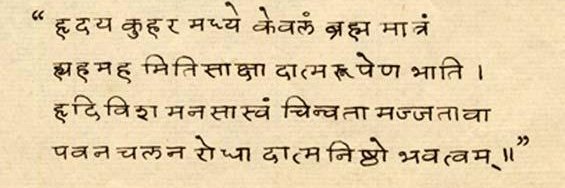 “ हृदय कुहर मध्ये केवलं ब्रह्म मात्रं
ह्यहमह मितिसाक्षा दात्मरूपेण भाति ।
हृदिविश मनसास्वं चिन्वता मज्जतावा
पवनचलन रोधा दात्मनिष्ठो भवत्वम् ॥”